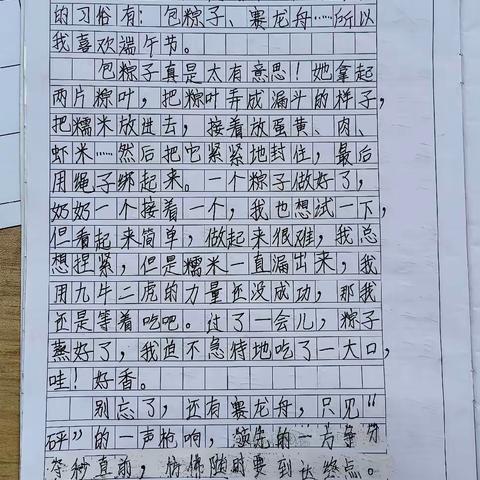 的习俗有：包粽子、赛龙舟……所以
我喜欢端午节。
包粽子真是太有意思！她拿起
两片粽叶，把粽叶弄成漏斗的样子，
把糯米放进去，接着放蛋黄、肉、
虾米……然后把它紧紧地封住，最后
用绳子绑起来。一个粽子做好了，
奶奶一个接着一个，我也想试一下，
但看起来简单，做起来很难，我总
想捏紧，但是糯米一直漏出来，我
用九牛二虎的力量还没成功，那我
还是等着吃吧。过了一会儿，粽子
蒸好了，我迫不急待地吃了一大口，
哇！好香。
别忘了，还有赛龙舟，只见“
砰”的一声枪响，领先的一方争分
夺秒直前，仿佛随时要到达终点。